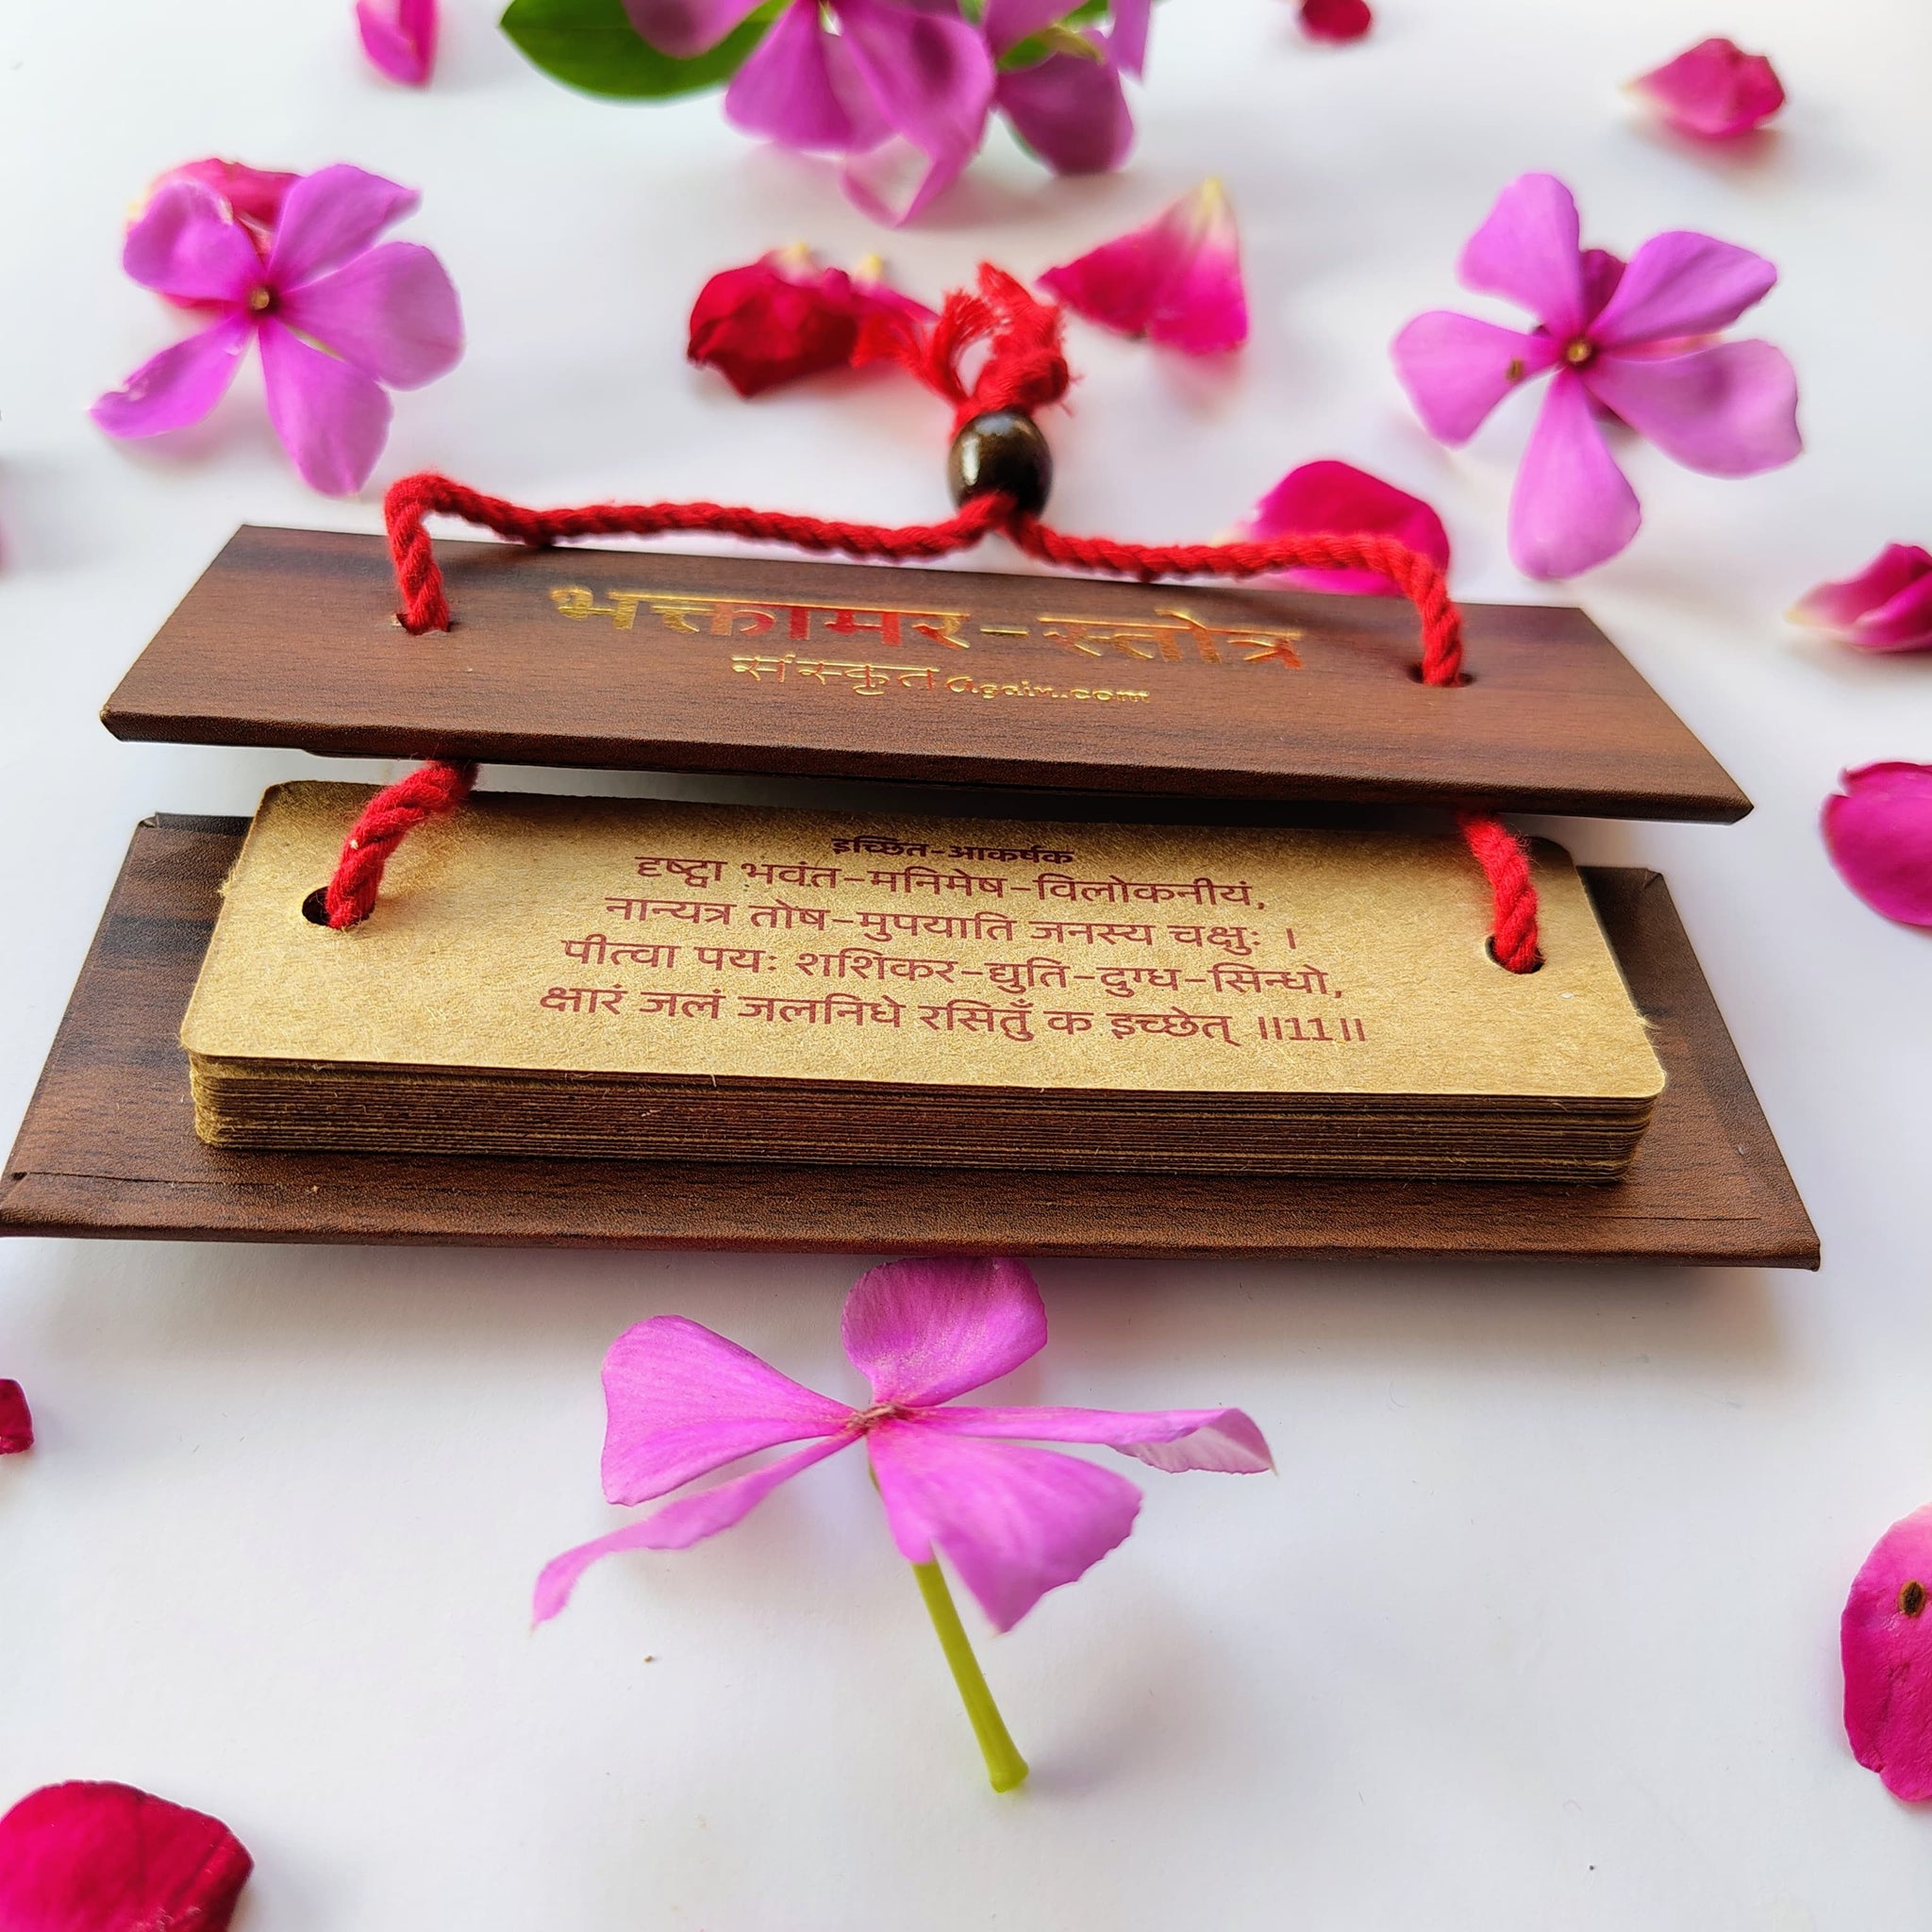 भक्तामर-स्तोत्र
संस्कृतAgain.com
इच्छित-आकर्षक
दृष्ट्वा भवंत-मनिमेष-विलोकनीयं,
नान्यत्र तोष-मुपयाति जनस्य चक्षुः ।
पीत्वा पयः शशिकर-द्युति-दुग्ध-सिन्धो,
क्षारं जलं जलनिधे रसितुँ क इच्छेत् ॥11॥